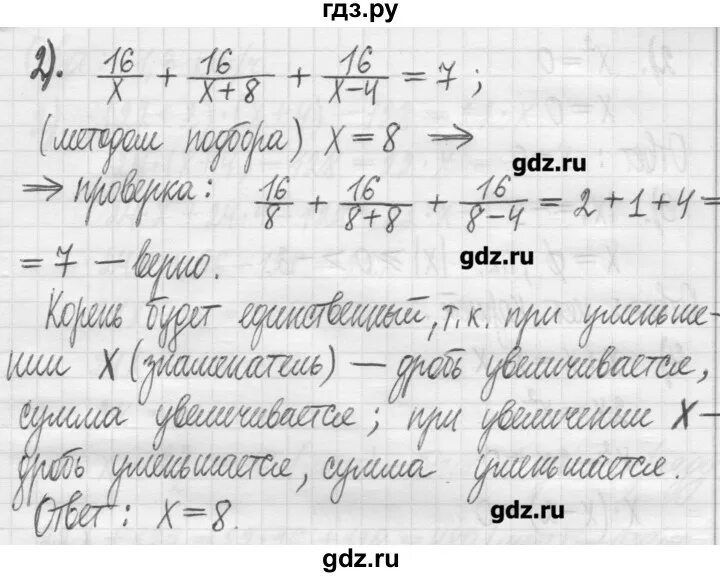 гдз.ру
2). 16/x + 16/(x+8) + 16/(x-4) = 7 ;
(методом подбора) x = 8 ⇒
gdz.ru
⇒ проверка: 16/8 + 16/(8+8) + 16/(8-4) = 2+1+4 =
gdz.ru
= 7 – верно.
Корень будет единственный, т.к. при уменьше-
нии x (знаменатель) – дробь увеличивается,
сумма увеличивается; при увеличении x –
дробь уменьшается, сумма уменьшается.
Ответ: x = 8.
gdz.ru
gdz.ru